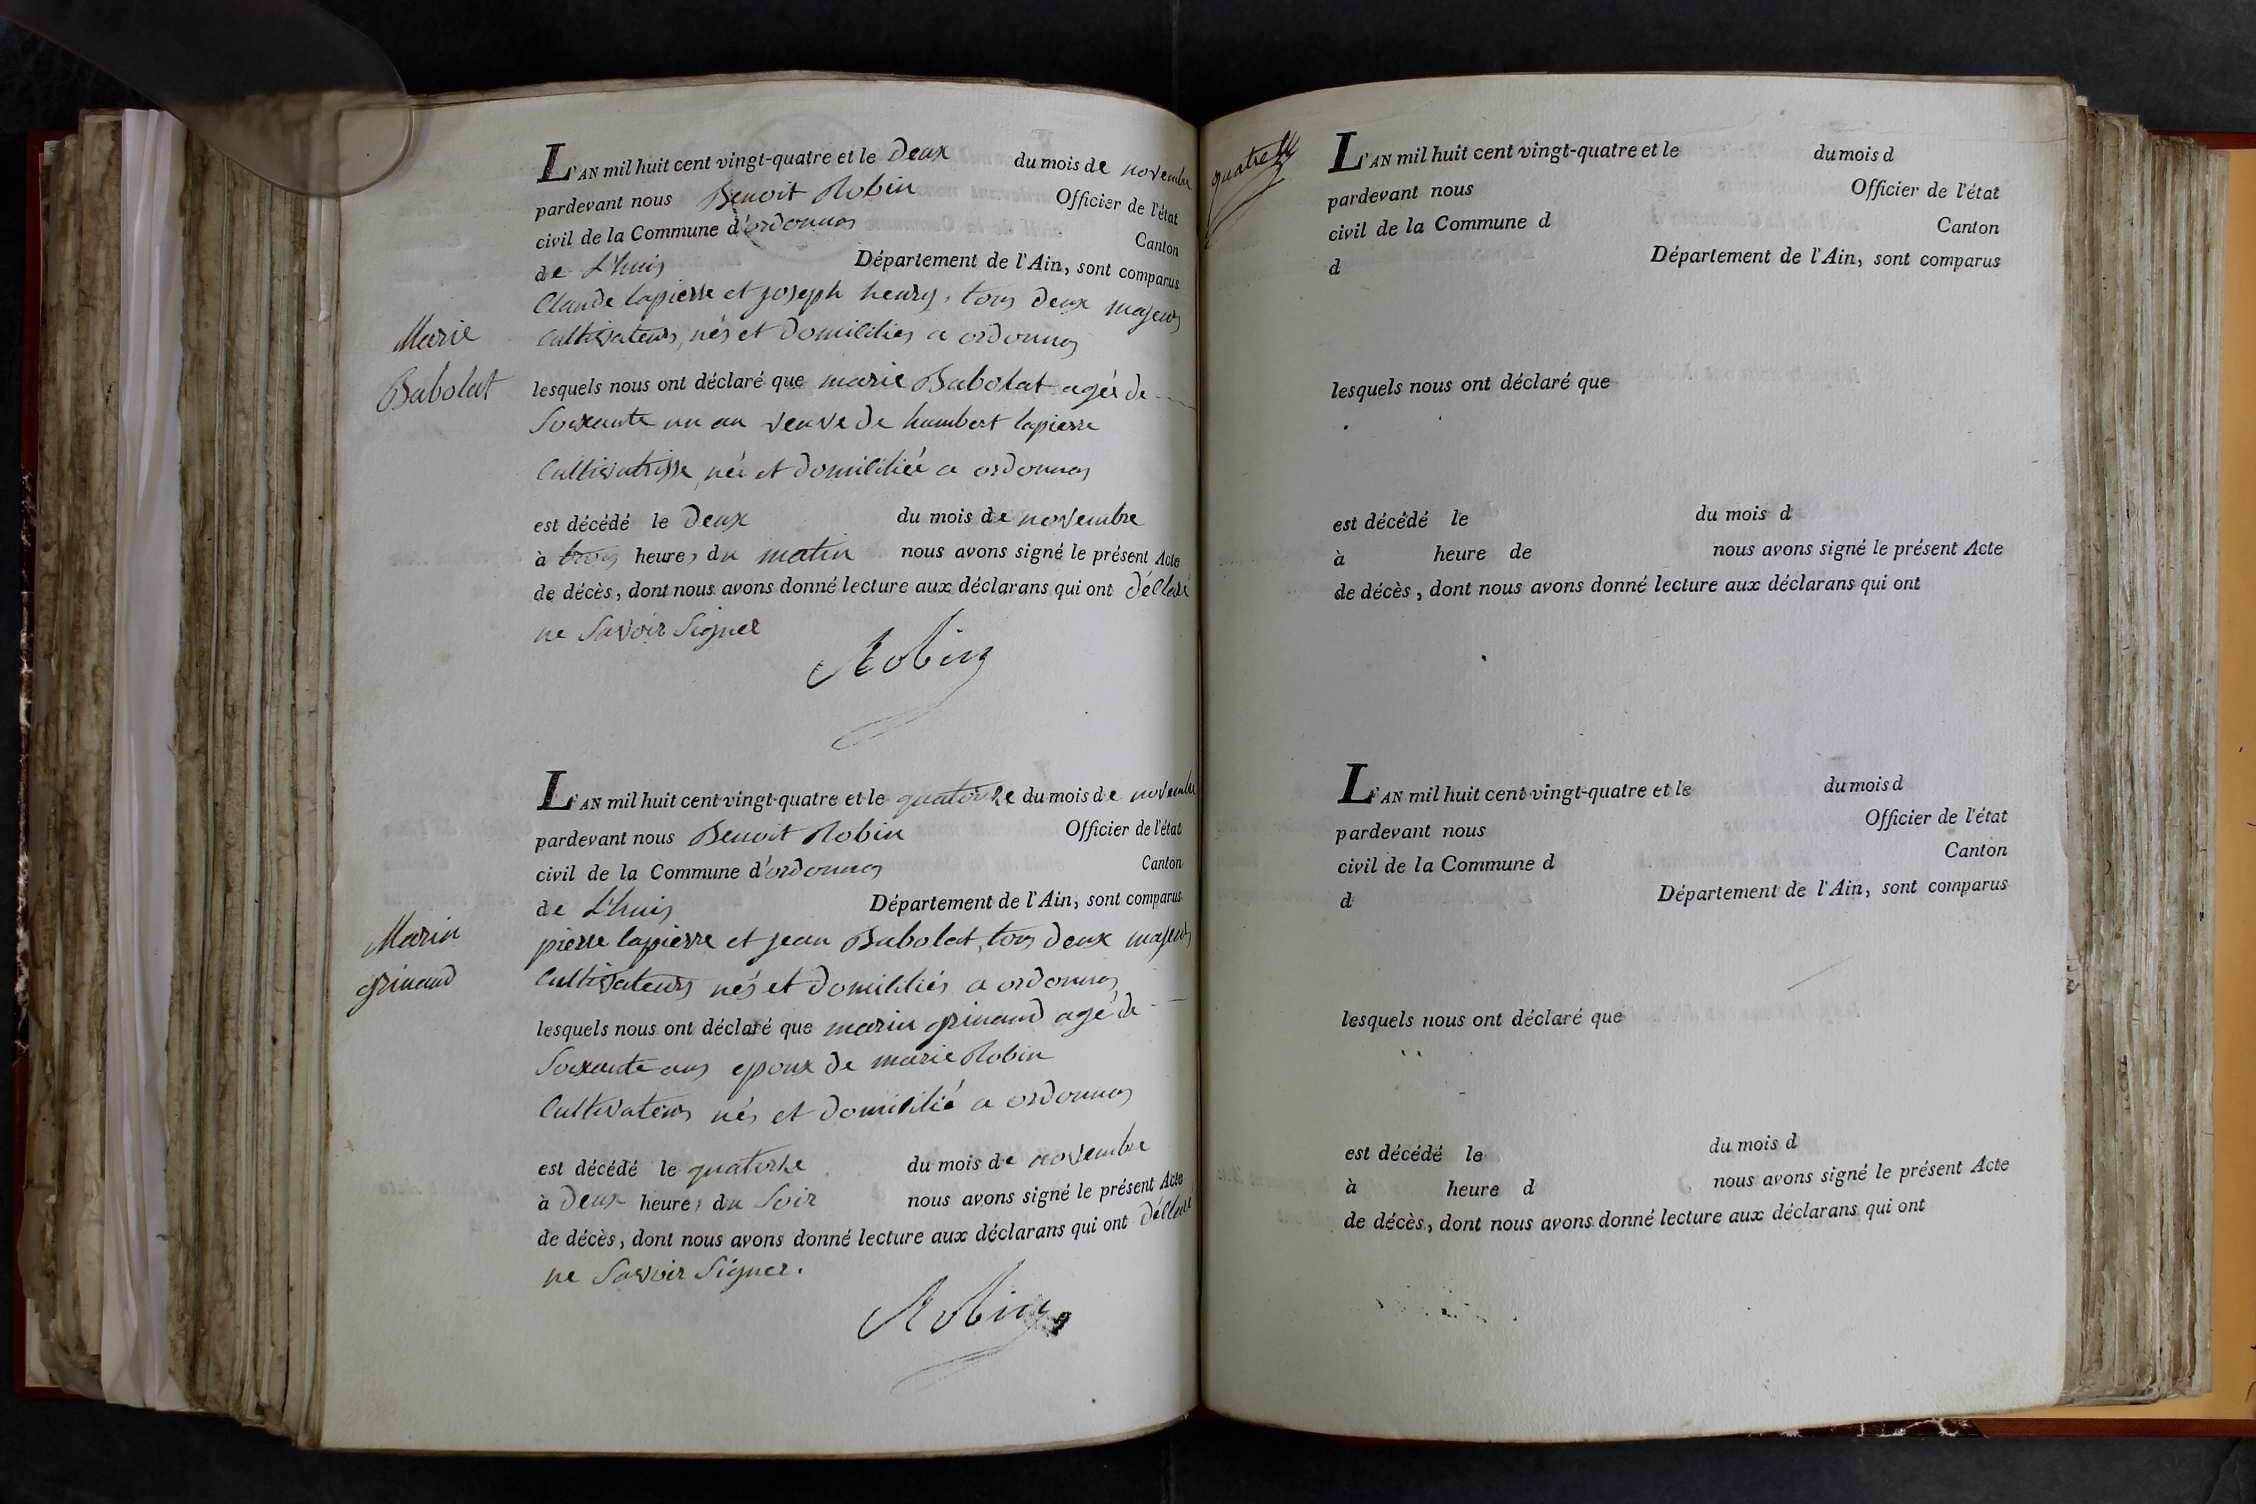 L'AN mil huit cent vingt-quatre et le deux du mois de novembre
pardevant nous Benoit Robin Officier de l'état
civil de la Commune d'ordonnas Canton
de L'huis Département de l'Ain, sont comparus
Claude lapierre et joseph henry, tous deux majeurs
Marie
Cultivateurs, nés et domiciliés a ordonnas
Babolat
lesquels nous ont déclaré que marie Babolat agée de
Soixante un an veuve de humbert lapierre
Cultivatrisse, née et domiciliée a ordonnas
est décédé le deux du mois de novembre
à trois heures du matin nous avons signé le présent Acte
de décès, dont nous avons donné lecture aux déclarans qui ont déclaré
ne Savoir Signer
Robin
L'AN mil huit cent vingt-quatre et le quatorze du mois de novembre
pardevant nous Benoit Robin Officier de l'état
civil de la Commune d'ordonnas Canton
de L'huis Département de l'Ain, sont comparus
Marin
pierre lapierre et jean Babolat, tous deux majeurs
grinand
Cultivateurs nés et domiciliés a ordonnas
lesquels nous ont déclaré que marin grinand agé de
Soixante ans epoux de marie Robin
Cultivateurs nés et domicilié a ordonnas
est décédé le quatorze du mois de novembre
à deux heures du Soir nous avons signé le présent Acte
de décès, dont nous avons donné lecture aux déclarans qui ont déclaré
ne Savoir Signer.
Robin
L'AN mil huit cent vingt-quatre et le du mois d
pardevant nous Officier de l'état
civil de la Commune d Canton
d Département de l'Ain, sont comparus
lesquels nous ont déclaré que
est décédé le du mois d
à heure de nous avons signé le présent Acte
de décès, dont nous avons donné lecture aux déclarans qui ont
L'AN mil huit cent vingt-quatre et le du mois d
pardevant nous Officier de l'état
civil de la Commune d Canton
d Département de l'Ain, sont comparus
lesquels nous ont déclaré que
est décédé le du mois d
à heure d nous avons signé le présent Acte
de décès, dont nous avons donné lecture aux déclarans qui ont